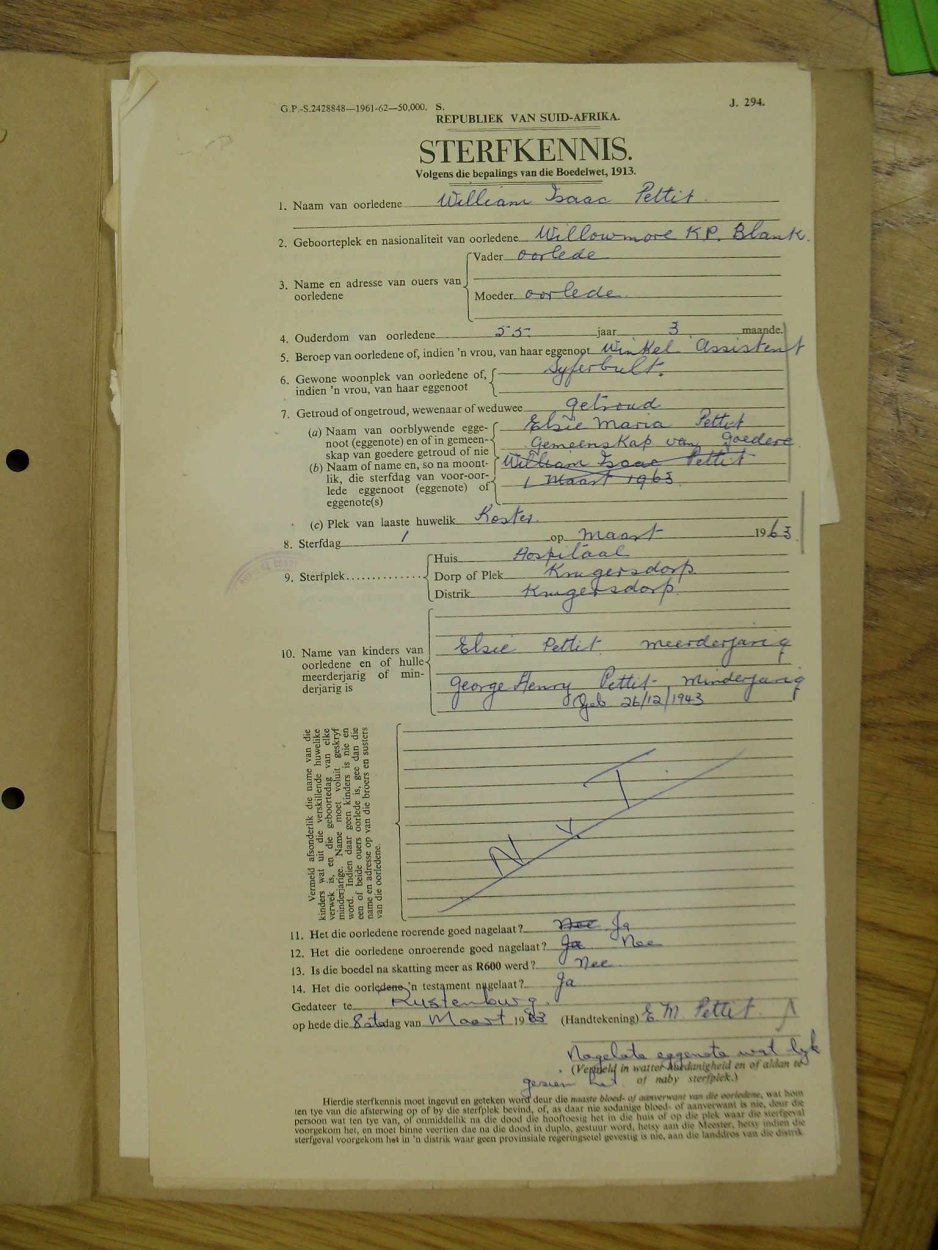 G.P.-S.2428848—1961-62—50,000. S. J. 294.
REPUBLIEK VAN SUID-AFRIKA.
STERFKENNIS.
Volgens die bepalings van die Boedelwet, 1913.
1. Naam van oorledene William Isaac Pettit
2. Geboorteplek en nasionaliteit van oorledene Willowmore K.P. Blank.
3. Name en adresse van ouers van oorledene
Vader oorlede
Moeder oorlede
4. Ouderdom van oorledene 55 jaar 3 maande.
5. Beroep van oorledene of, indien 'n vrou, van haar eggenoot Winkel Assistent
6. Gewone woonplek van oorledene of, indien 'n vrou, van haar eggenoot
Syferbult.
7. Getroud of ongetroud, wewenaar of weduwee getroud
(a) Naam van oorblywende eggenoot (eggenote) en of in gemeenskap van goedere getroud of nie
Elsie Maria Pettit
Gemeenskap van goedere
(b) Naam of name en, so na moontlik, die sterfdag van voor-oorlede eggenoot (eggenote) of eggenote(s)
William Isaac Pettit
1 Maart 1963
(c) Plek van laaste huwelik Koster.
8. Sterfdag 1 op Maart 1963
9. Sterfplek
Huis Hospitaal
Dorp of Plek Krugersdorp
Distrik Krugersdorp
10. Name van kinders van oorledene en of hulle meerderjarig of minderjarig is
Elsie Pettit meerderjarig
George Henry Pettit - minderjarig
Geb 26/12/1943
Vermeld afsonderlik die name van die
kinders wat uit die verskillende huwelike
verwek is, en die geboortedag van elke
minderjarige. Name moet voluit geskryf
word. Indien daar geen kinders is nie en
een of beide ouers oorlede is, gee dan die
name en adresse op van die broers en susters
van die oorledene.
N V T
11. Het die oorledene roerende goed nagelaat? Nee Ja
12. Het die oorledene onroerende goed nagelaat? Ja Nee
13. Is die boedel na skatting meer as R600 werd? Nee
14. Het die oorledene 'n testament nagelaat? Ja
Gedateer te Rustenburg.
op hede die 8ste dag van Maart 1963 (Handtekening) E M Pettit
Nagelate eggenote wat lyk
(Vermeld in watter hoedanigheid en of aldan te
gesien het
of naby sterfplek.)
Hierdie sterfkennis moet ingevul en geteken word deur die naaste bloed- of aanverwant van die oorledene, wat hom
ten tye van die afsterwing op of by die sterfplek bevind, of, as daar nie sodanige bloed- of aanverwant is nie, deur die
persoon wat ten tye van, of onmiddellik na die dood die hooftoesig het in die huis of op die plek waar die sterfgeval
voorgekom het, en moet binne veertien dae na die dood in duplo, gestuur word, hetsy aan die Meester, hetsy indien die
sterfgeval voorgekom het in 'n distrik waar geen provinsiale regeringsetel gevestig is nie, aan die landdros van die distrik